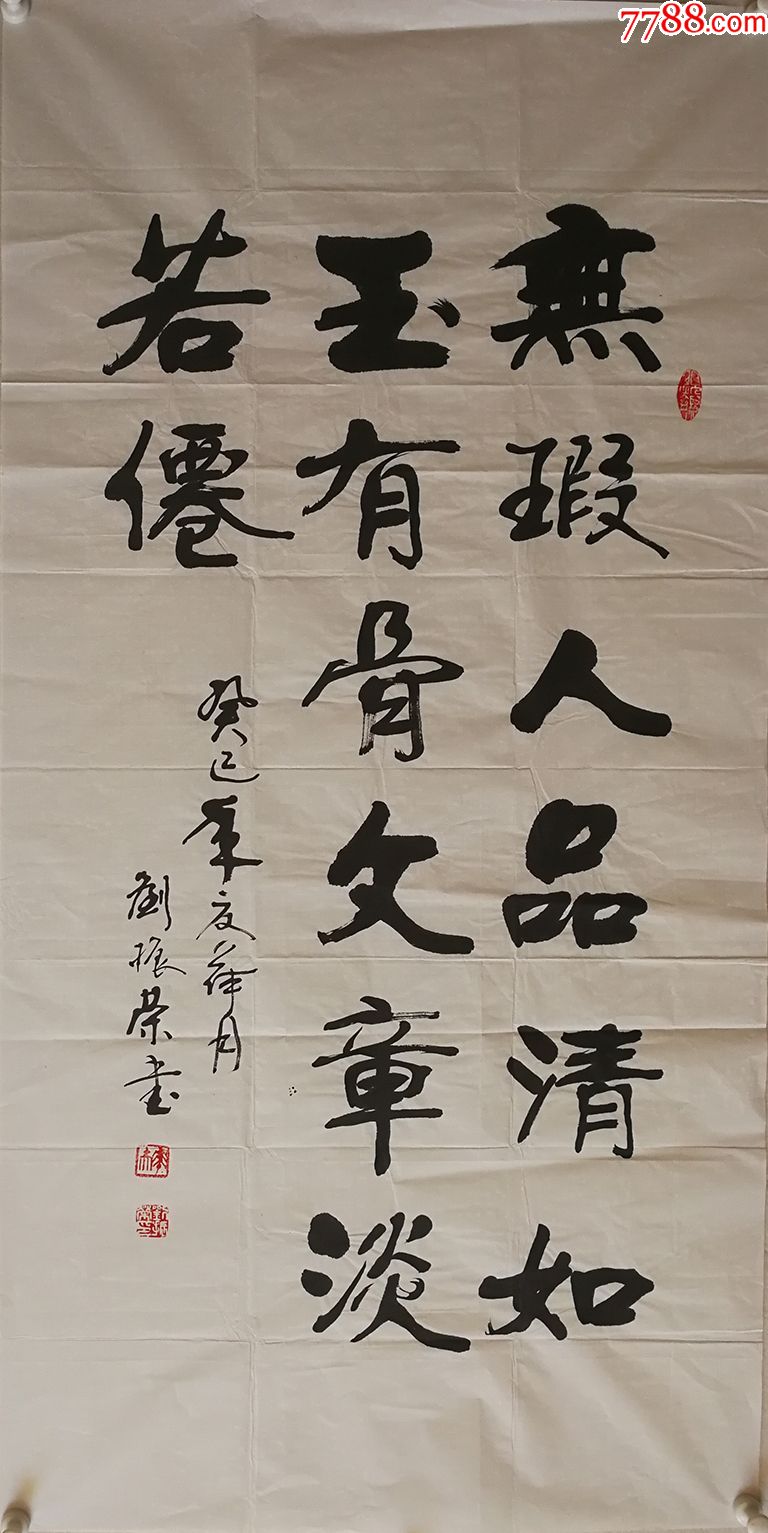 7788.com
無瑕人品清如
玉有骨文章淡
若僊
癸巳年夏荷月
劉振榮書